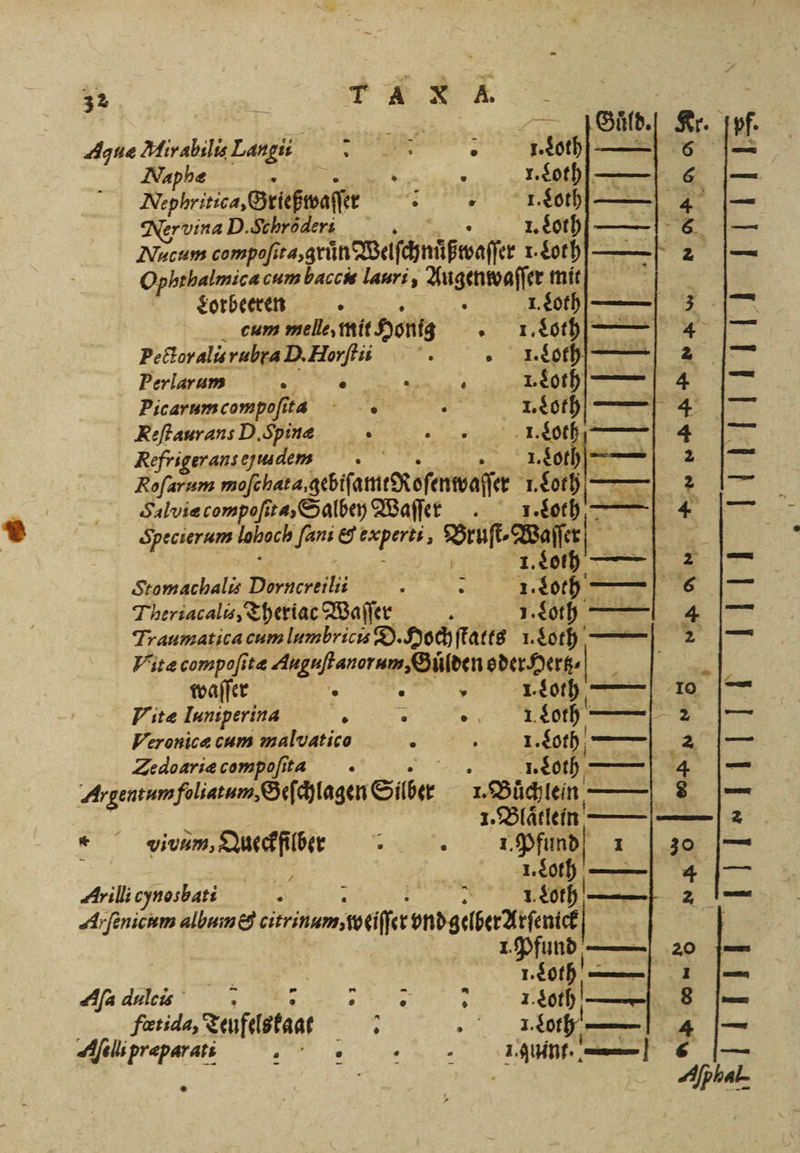 32 TAXA.
Gůld. Kr. pf.
Aquæ Mirabilis Langii . . . 1.Loth —— 6 —
Naphæ . . . . 1.Loth —— 6 —
Nephritica, Grießwasser . . 1.Loth —— 4 —
Nervina D. Schröderi . . 1.Loth —— 6 —
Nucum composita, grün Welschnußwasser 1.Loth —— 2 —
Ophthalmica cum baccis lauri, Augenwasser mit
Lorbeeren . . . 1.Loth —— 3 —
cum melle, mit Hönig . 1.Loth —— 4 —
Pectoralis rubra D. Horstii . . 1.Loth —— 2 —
Perlarum . . . . 1.Loth —— 4 —
Picarum composita . . 1.Loth —— 4 —
Restaurans D. Spinæ . . . 1.Loth —— 4 —
Refrigerans ejusdem . . . 1.Loth —— 2 —
Rosarum moschata, gebisamt Rosenwasser 1.Loth —— 2 —
Salviæ composita, Salbey Wasser . 1.Loth —— 4 —
Specierum lohoch sani & experti, Brust-Wasser
1.Loth —— 2 —
Stomachalis Dorncreilii . . 1.Loth —— 6 —
Theriacalis, Theriac Wasser . 1.Loth —— 4 —
Traumatica cum lumbricis D. Hochstatts 1.Loth —— 2 —
Vitæ composita Augustanorum, Gülden oder Hertz-
wasser . . . 1.Loth —— 10 —
Vitæ Iuniperina . . . 1.Loth —— 2 —
Veronicæ cum malvatico . . 1.Loth —— 2 —
Zedoariæ composita . . . 1.Loth —— 4 —
Argentum foliatum, Geschlagen Silber 1.Büchlein —— 8 —
1.Blätlein —— —— 2
* vivum, Quecksilber . . 1.Pfund 1 30 —
1.Loth —— 4 —
Arilli cynosbati . . . . 1.Loth —— 2 —
Arsenicum album & citrinum, weisser vnd gelber Arsenick
1.Pfund —— 20 —
1.Loth —— 1 —
Asa dulcis . . . . . 1.Loth —— 8 —
fœtida, Teufelskaat . . 1.Loth —— 4 —
Aselli præparati . . . . 1.quint. —— 6 —
Asphal-